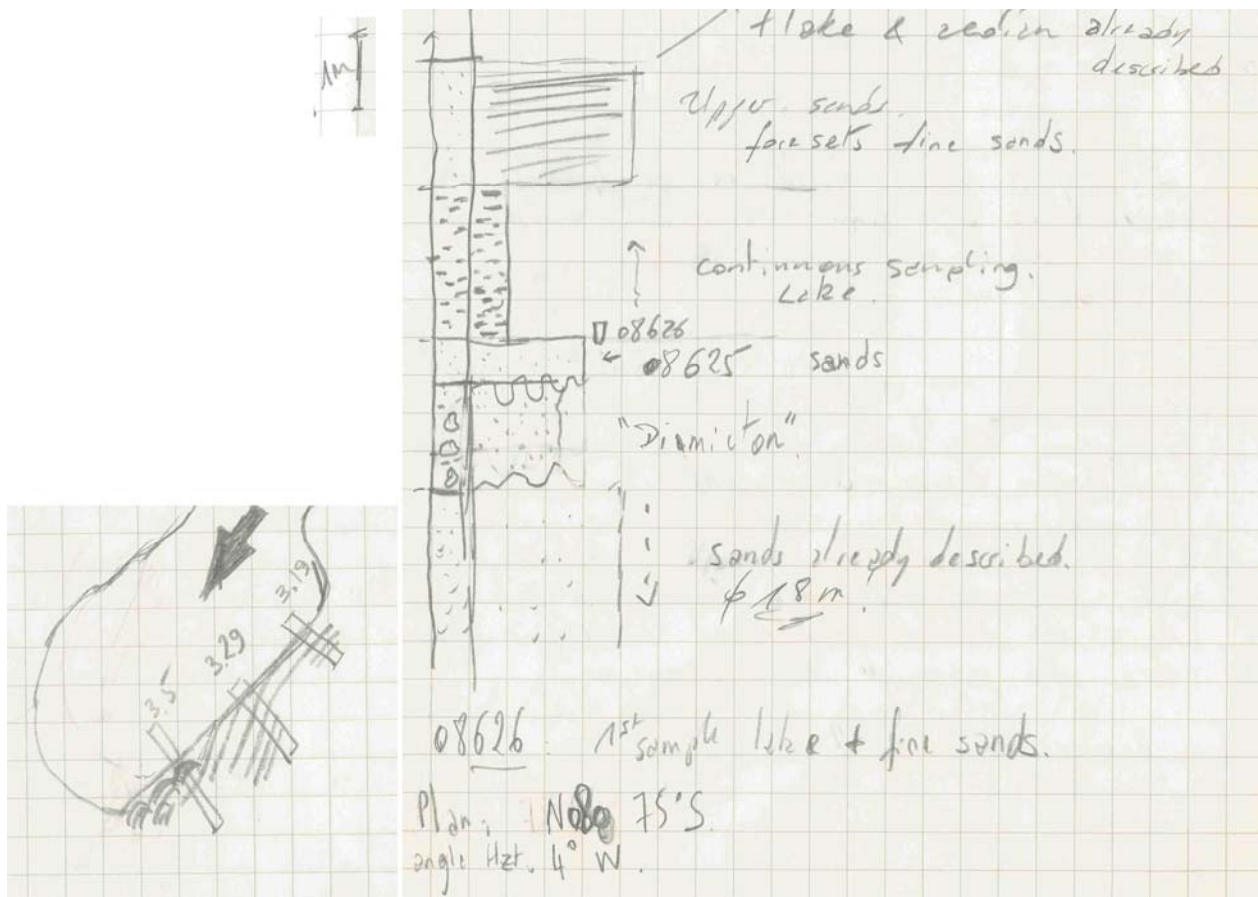 1m
lake & section already
described
Upper sands.
foresets fine sands.
continuous sampling.
Lake.
08626
08625 sands
"Diamicton"
sands already described.
18 m.
3.19
3.29
3.5
08626 : 1st sample lake + fine sands.
Plan: N080 75°S.
angle Hzt. 4° W.